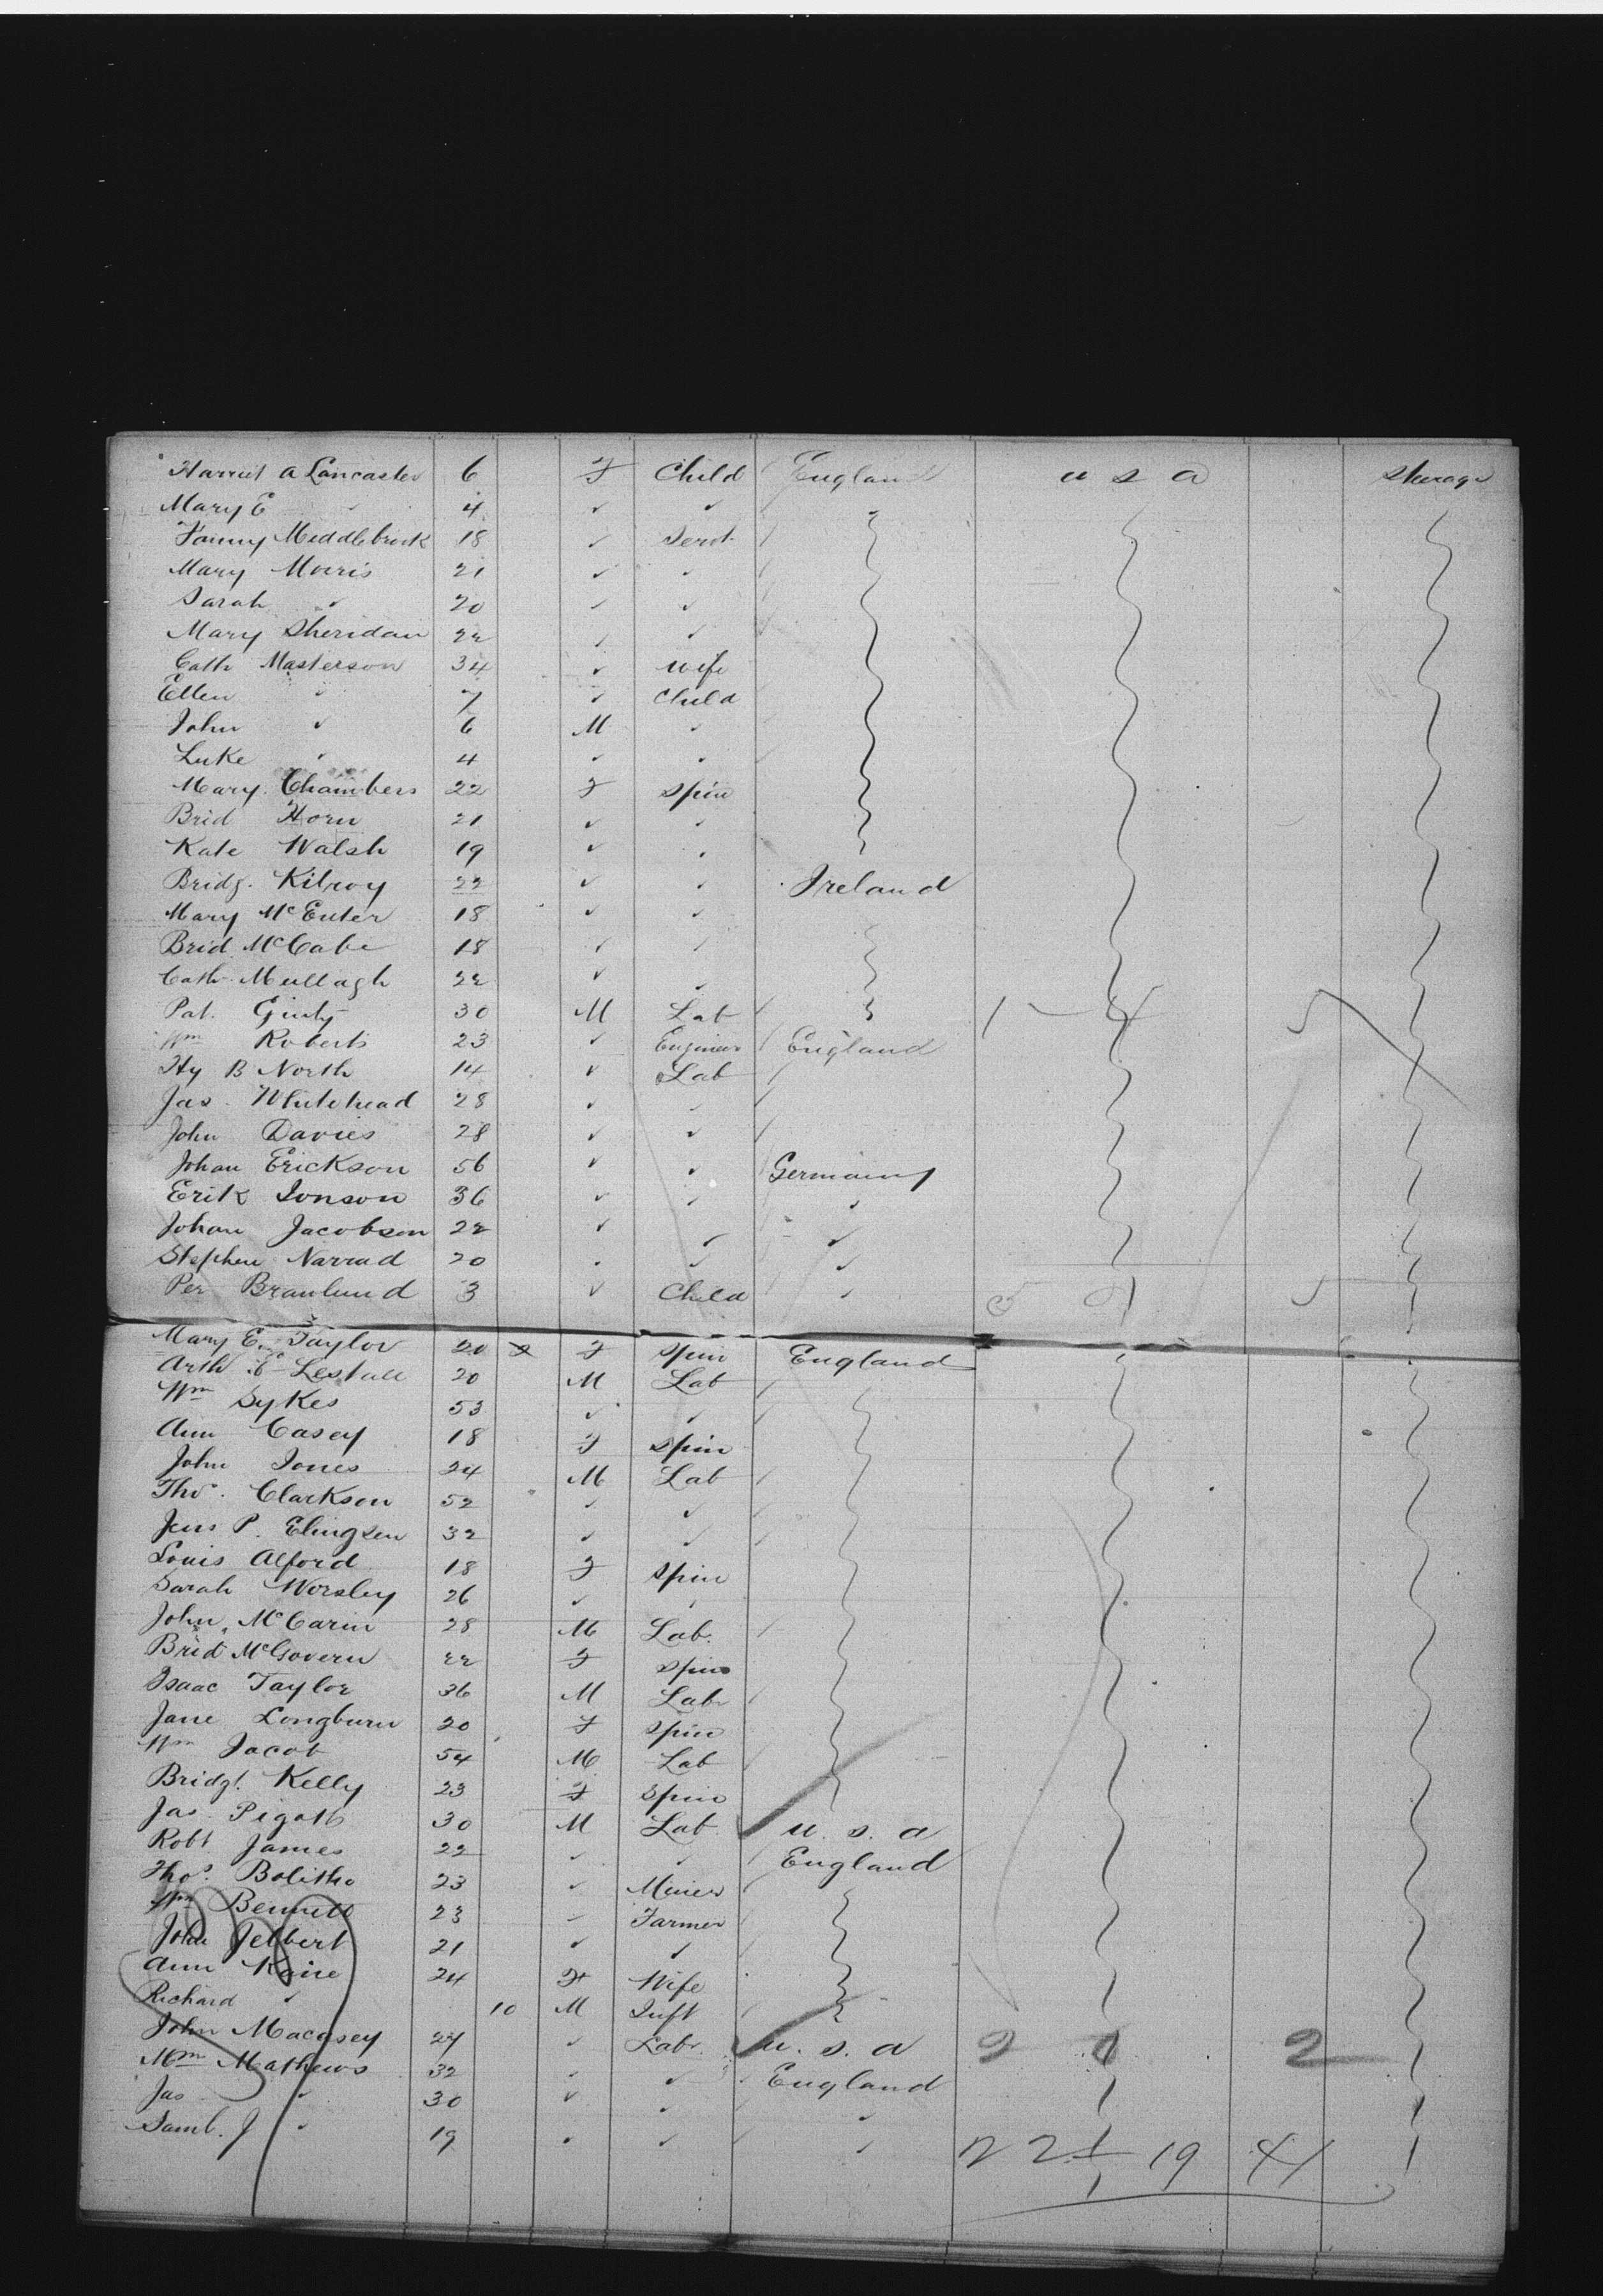 Harriet A Lancaster 6 F Child England U S A Steerage
Mary E ✓ 4 ✓ ✓
Fanny Middlebrook 18 ✓ Servt.
Mary Morris 21 ✓ ✓
Sarah ✓ 20 ✓ ✓
Mary Sheridan 22 ✓ ✓
Cath Masterson 34 ✓ Wife
Ellen ✓ 7 ✓ Child
John ✓ 6 M ✓
Luke ✓ 4 ✓ ✓
Mary Chambers 22 F Spin
Brid Horn 21 ✓ ✓
Kate Walsh 19 ✓ ✓
Bridg. Kilroy 22 ✓ ✓ Ireland
Mary McEnter 18 ✓ ✓
Brid McCabe 18 ✓ ✓
Cath Mullagh 22 ✓ ✓
Pat. Ginty 30 M Lab 1 4 5
Wm Roberts 23 ✓ Engineer England
Hy B North 14 ✓ Lab
Jas. Whitehead 28 ✓ ✓
John Davies 28 ✓ ✓
Johan Erickson 56 ✓ ✓ Germany
Erik Jonson 36 ✓ ✓ ✓
Johan Jacobson 22 ✓ ✓ ✓
Stephen Narrad 20 ✓ ✓ ✓
Per Branlund 3 ✓ Child ✓
Mary E. Taylor 20 F Spin England
Arth E Lestall 20 M Lab
Wm Sykes 53 ✓ ✓
Ann Casey 18 F Spin
John Jones 24 M Lab
Thos. Clarkson 52 ✓ ✓
Jens P. Elingsen 32 ✓ ✓
Louis Alford 18 F Spin
Sarah Worsley 26 ✓ ✓
John McCarin 28 M Lab.
Brid McGovern 22 F Spin
Isaac Taylor 36 M Labr
Jane Longburn 20 F Spin
Wm Jacob 54 M Lab
Bridgt. Kelly 23 F Spin
Jas. Pigott 30 M Lab U. S. A
Robt James 22 ✓ ✓ England
Thos. Bolitho 23 ✓ Miner
Wm Bennett 23 ✓ Farmer
John Jelbert 21 ✓ ✓
Ann Kaine 24 F Wife
Richard ✓ 10 M Inft
John Macasey 27 ✓ Labr. U. S. A 2 2
Wm Mathews 32 ✓ ✓ England
Jas ✓ 30 ✓ ✓ ✓
Saml. J ✓ 19 ✓ ✓ ✓ 19 41